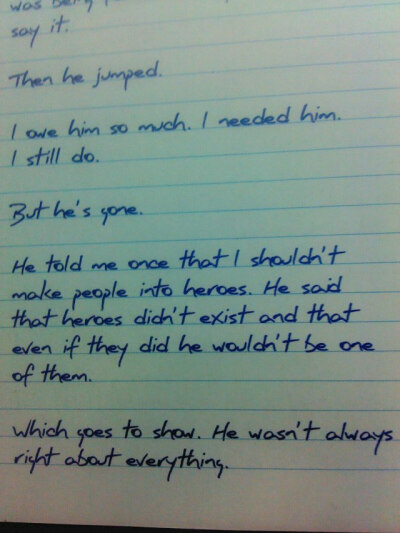 was being
say it.
Then he jumped.
I owe him so much. I needed him.
I still do.
But he's gone.
He told me once that I shouldn't
make people into heroes. He said
that heroes didn't exist and that
even if they did he wouldn't be one
of them.
Which goes to show. He wasn't always
right about everything.